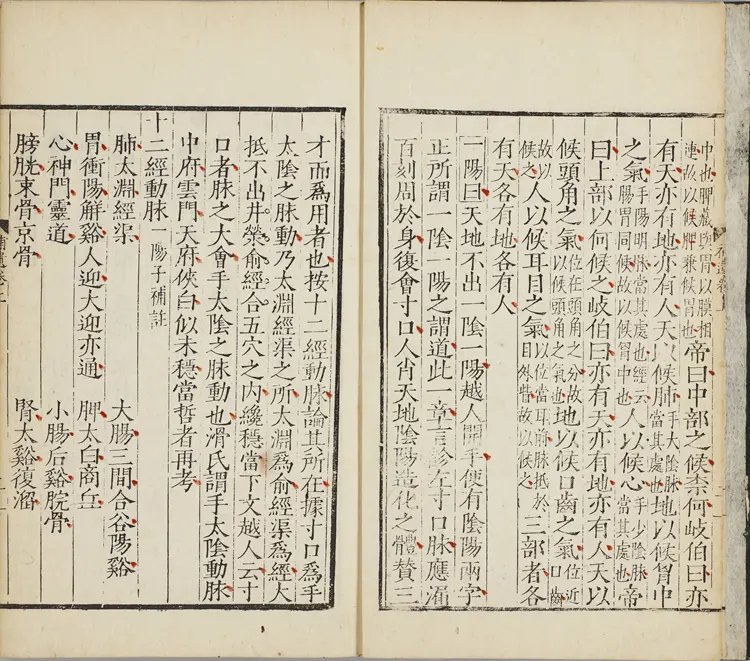 中也脾藏與胃以膜相
連故以候脾兼候胃也
帝曰中部之候柰何岐伯曰亦
有天亦有地亦有人天以候肺
手太陰脉
當其處也
地以候胷中
之氣
手陽明脉當其處也經云
腸胃同候故以候胃中也
人以候心
手少陰脉
當其處也
帝
曰上部以何候之岐伯曰亦有天亦有地亦有人天以
候頭角之氣
位在頭角之分故
以候頭角之氣也
地以候口齒之氣
位近
口齒
故以
候之
人以候耳目之氣
以位當耳前脉抵於
目外眥故以候之
三部者各
有天各有地各有人
一陽曰天地不出一陰一陽越人開手便有陰陽兩字
正所謂一陰一陽之謂道此一章言診左寸口脉應漏
百刻周於身復會寸口人肖天地陰陽造化之體贊三
才而爲用者也按十二經動脉論其所在據寸口爲手
太陰之脉動乃太淵經渠之所太淵爲俞經渠爲經大
抵不出井滎俞經合五穴之内纔穩當下文越人云寸
口者脉之大會手太陰之脉動也滑氏謂手太陰動脉
中府雲門天府俠白似未穩當哲者再考
十二經動脉 一陽子補註
肺太淵經渠 大腸三間合谷陽谿
胃衝陽解谿人迎大迎亦通 脾太白商丘
心神門靈道 小腸后谿腕骨
膀胱束骨京骨 腎太谿復溜